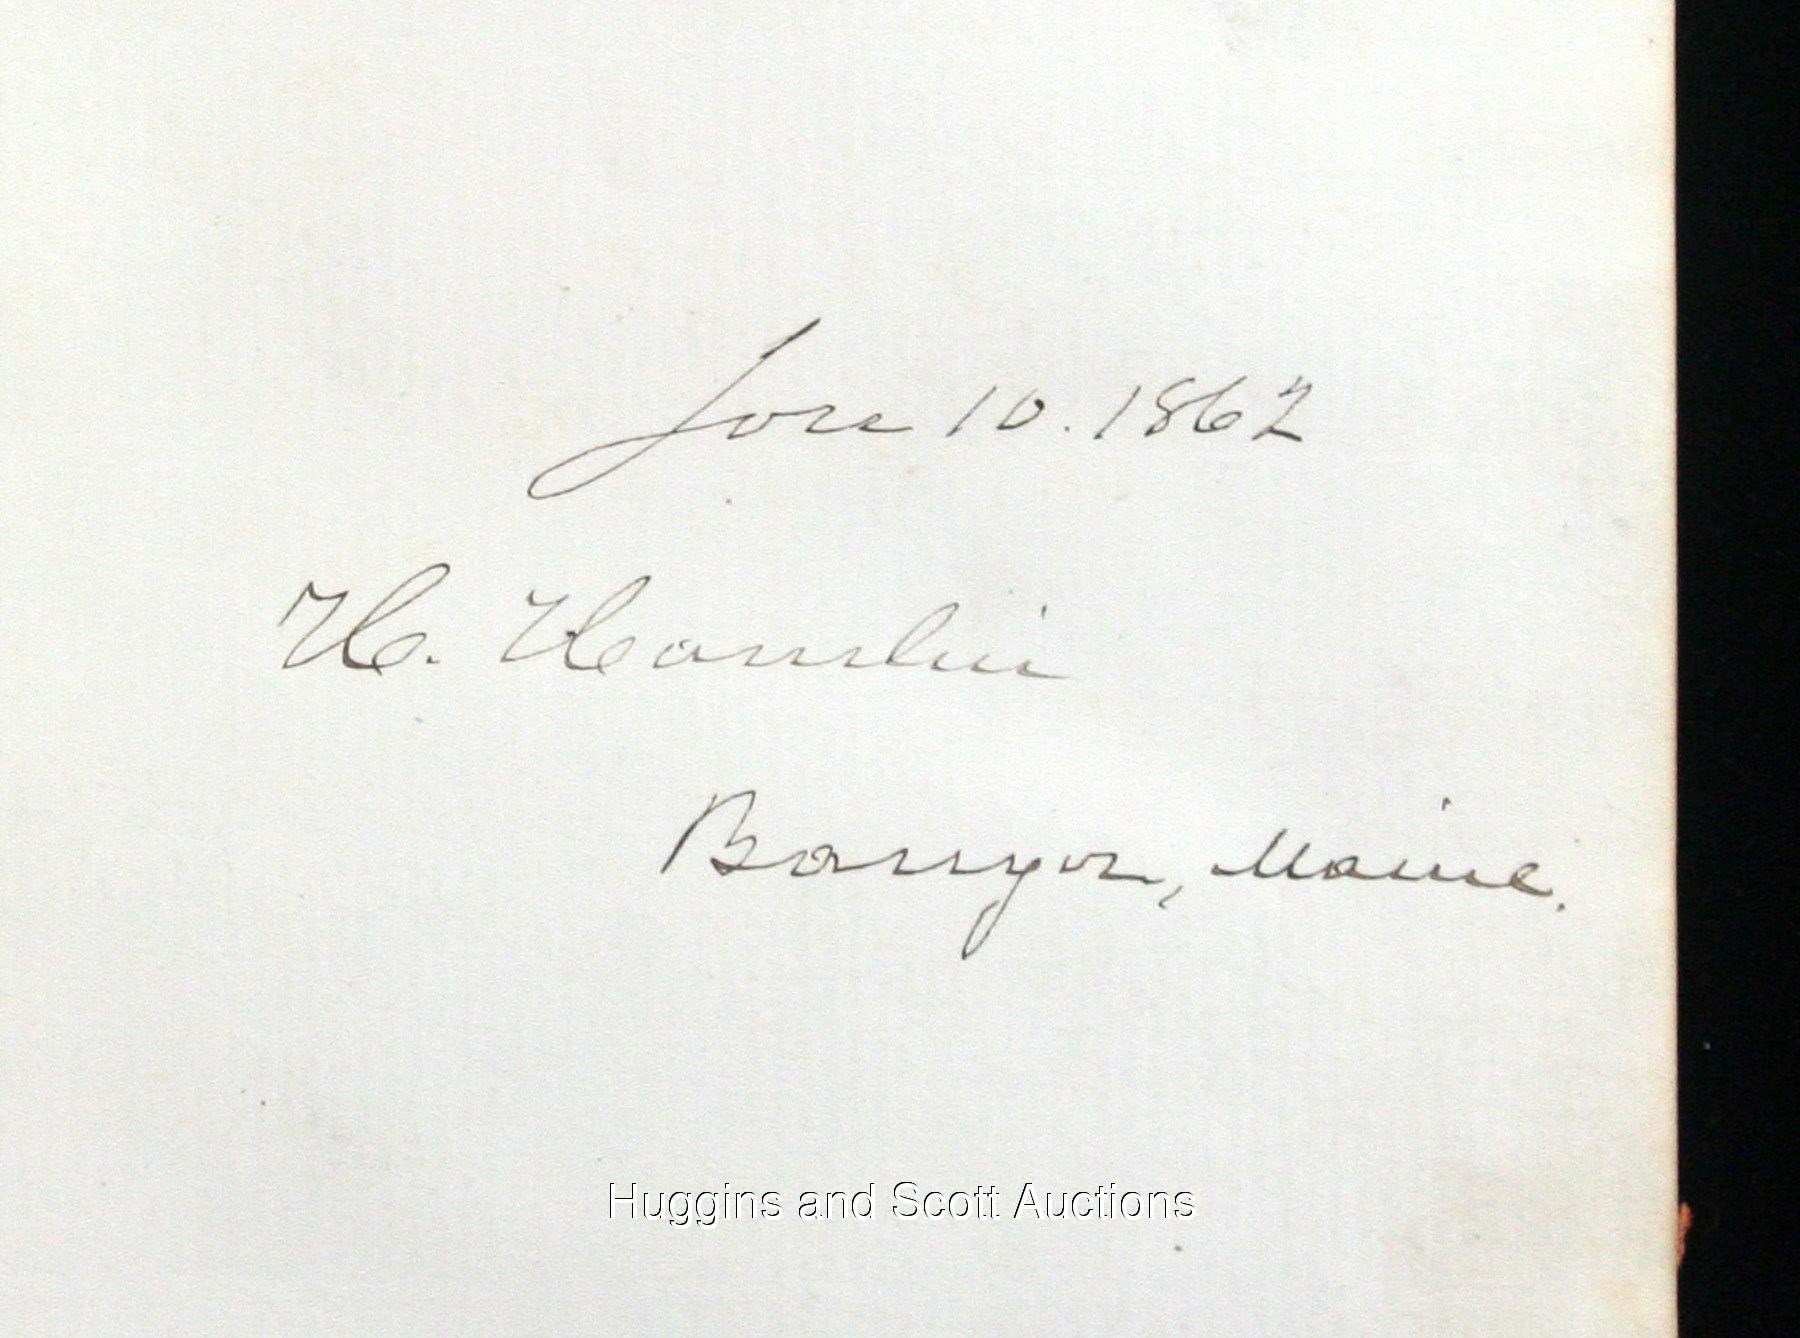 Jan 10. 1862
H. Hamlin
Bangor, Maine.
Huggins and Scott Auctions